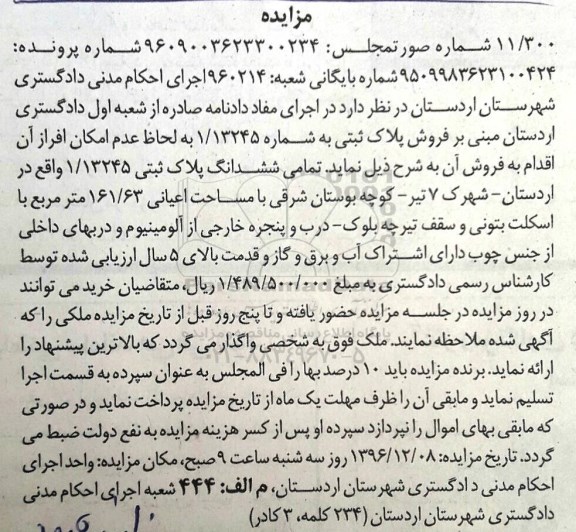 مزایده
۱۱/۳۰۰ شماره صورتمجلس: ۹۶۰۹۰۰۳۶۲۳۳۰۰۲۳۴ شماره پرونده:
۹۵۰۹۹۸۳۶۲۳۱۰۰۴۲۴ شماره بایگانی شعبه: ۹۶۰۲۱۴ اجرای احکام مدنی دادگستری
شهرستان اردستان در نظر دارد در اجرای مفاد دادنامه صادره از شعبه اول دادگستری
اردستان مبنی بر فروش پلاک ثبتی به شماره ۱/۱۳۲۴۵ به لحاظ عدم امکان افراز آن
اقدام به فروش آن به شرح ذیل نماید. تمامی ششدانگ پلاک ثبتی ۱/۱۳۲۴۵ واقع در
اردستان- شهرک ۷ تیر- کوچه بوستان شرقی با مساحت اعیانی ۱۶۱/۶۳ متر مربع با
اسکلت بتونی و سقف تیرچه بلوک- درب و پنجره خارجی از آلومینیوم و دربهای داخلی
از جنس چوب دارای اشتراک آب و برق و گاز و قدمت بالای ۵ سال ارزیابی شده توسط
کارشناس رسمی دادگستری به مبلغ ۱/۴۸۹/۵۰۰/۰۰۰ ریال، متقاضیان خرید می توانند
در روز مزایده در جلسه مزایده حضور یافته و تا پنج روز قبل از تاریخ مزایده ملکی را که
آگهی شده ملاحظه نمایند. ملک فوق به شخصی واگذار می گردد که بالاترین پیشنهاد را
ارائه نماید. برنده مزایده باید ۱۰ درصد بها را فی المجلس به عنوان سپرده به قسمت اجرا
تسلیم نماید و مابقی آن را ظرف مهلت یک ماه از تاریخ مزایده پرداخت نماید و در صورتی
که مابقی بهای اموال را نپردازد سپرده او پس از کسر هزینه مزایده به نفع دولت ضبط می
گردد. تاریخ مزایده: ۱۳۹۶/۱۲/۰۸ روز سه شنبه ساعت ۹ صبح، مکان مزایده: واحد اجرای
احکام مدنی دادگستری شهرستان اردستان، م الف: ۴۴۴ شعبه اجرای احکام مدنی
دادگستری شهرستان اردستان (۲۳۴ کلمه، ۳ کادر)